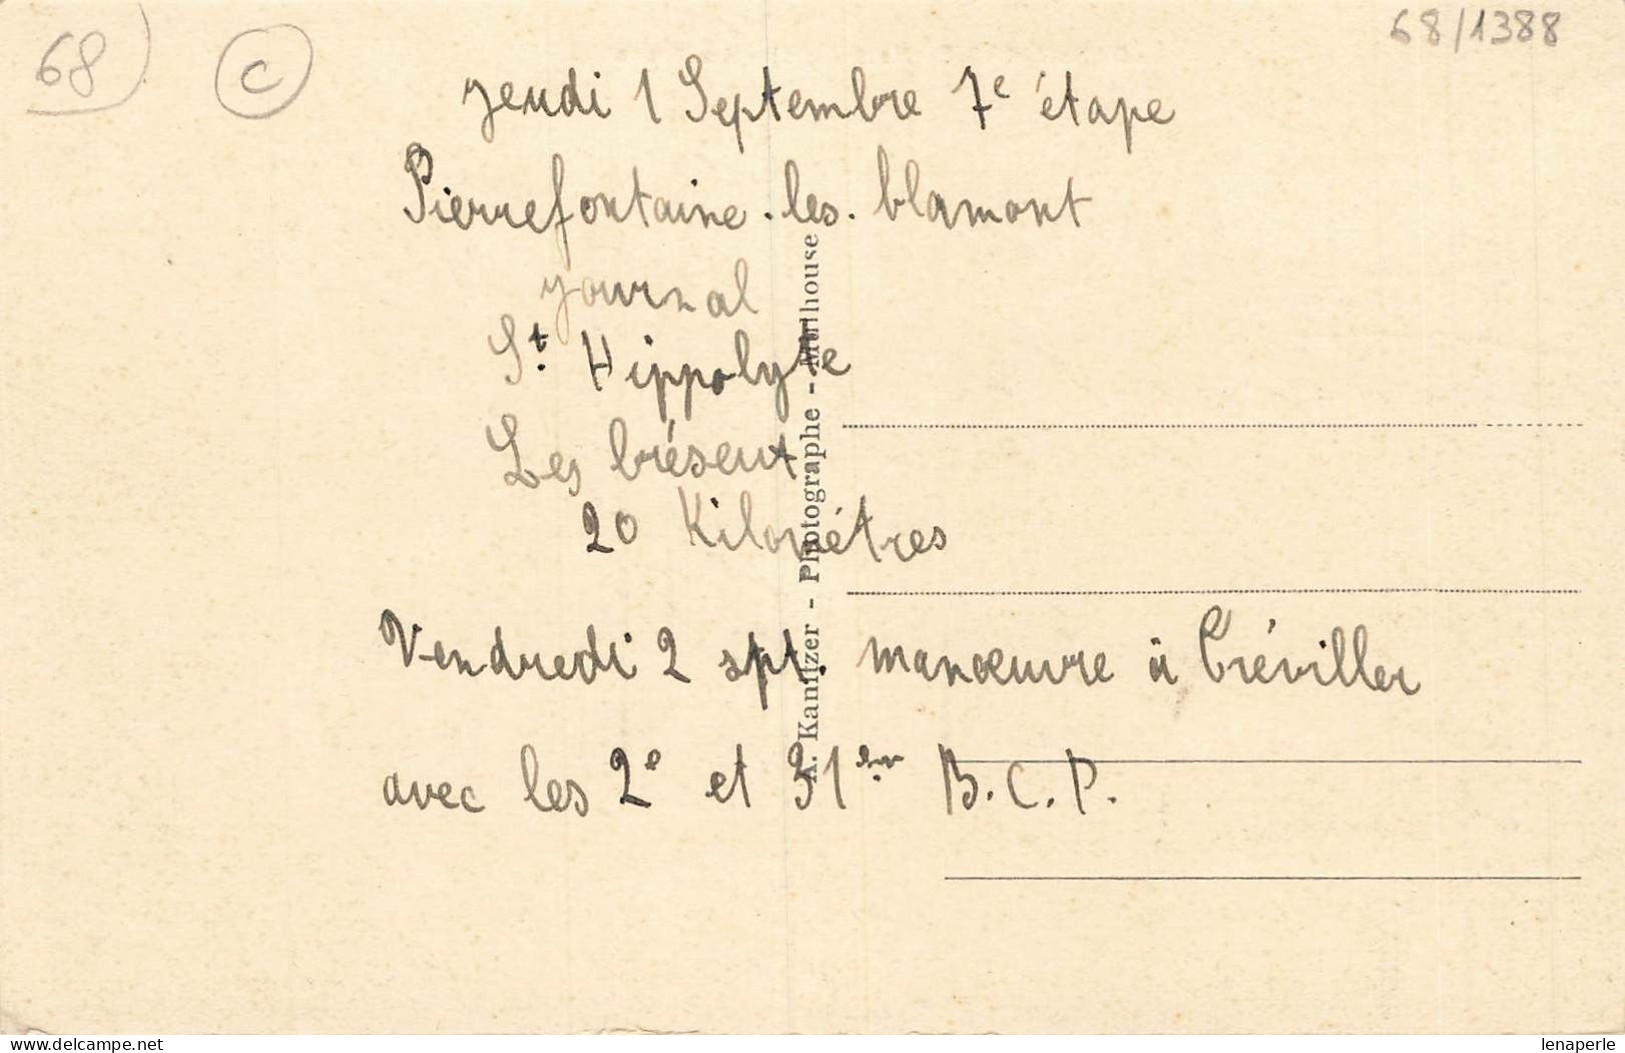 68
C
68/1388
Jeudi 1 Septembre 7e étape
Pierrefontaine-les-blamont
journal
St. Hippolyte
Les bréseux
20 Kilomètres
Vendredi 2 spt. manœuvre à Tréviller
avec les 2e et 31em B.C.P.
A. Kanitzer - Photographe - Mulhouse
delcampe.net
lenaperle